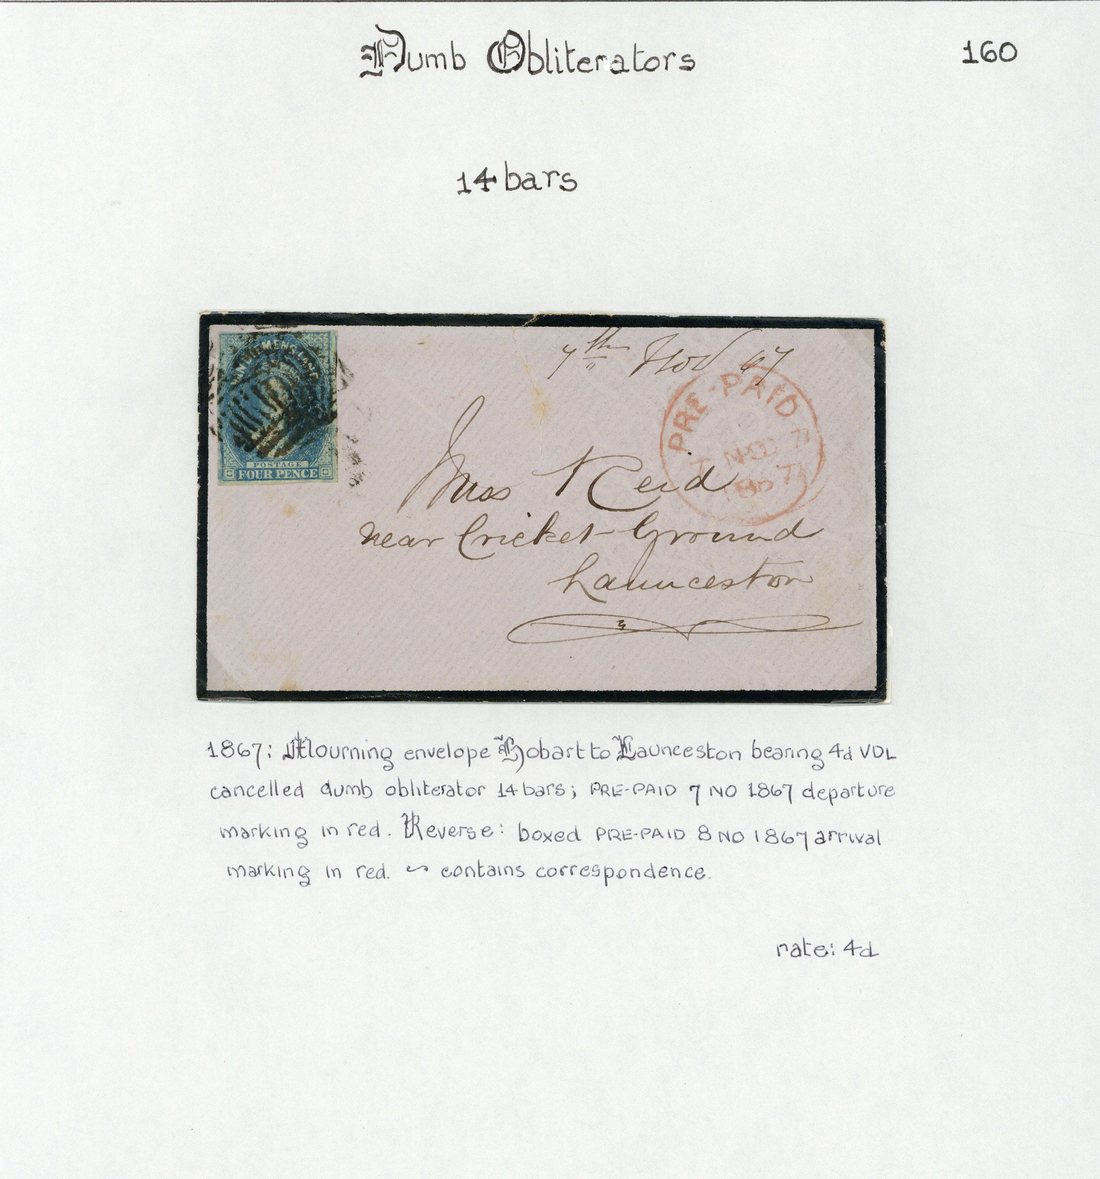 Dumb Obliterators
160
14 bars
VAN DIEMENS LAND
POSTAGE
FOUR PENCE
7th Nov 67
PRE-PAID
7
NO 7
1867
Miss Reid
near Cricket-Ground
Launceston
1867: Mourning envelope Hobart to Launceston bearing 4d VDL
cancelled dumb obliterator 14 bars; PRE-PAID 7 NO 1867 departure
marking in red. Reverse: boxed PRE-PAID 8 NO 1867 arrival
marking in red. ~ contains correspondence.
rate: 4d